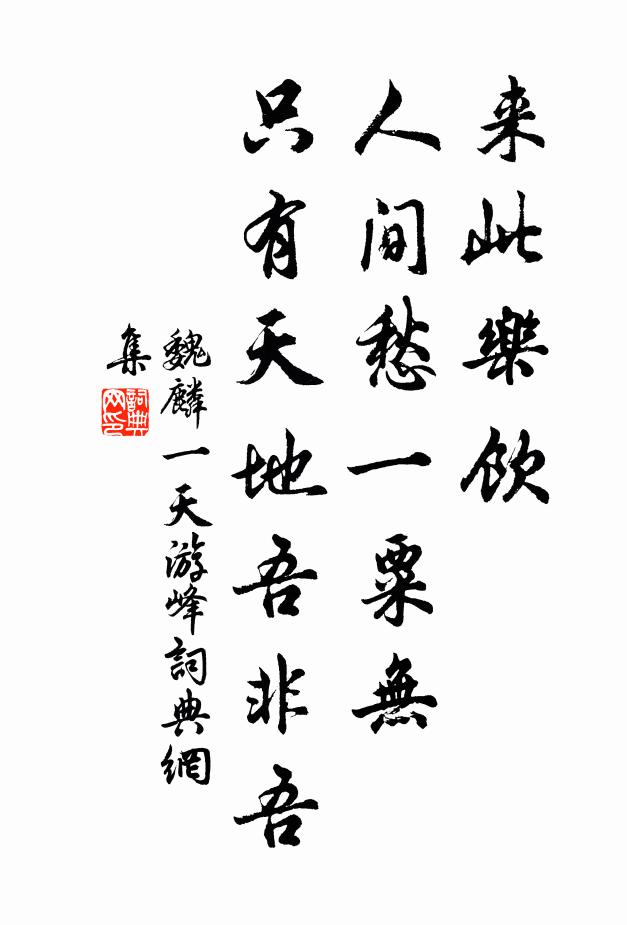 来此樂飲
人間愁一粟無
只有天地吾非吾
魏麟一天游峰詞典網
集
詞典
网印